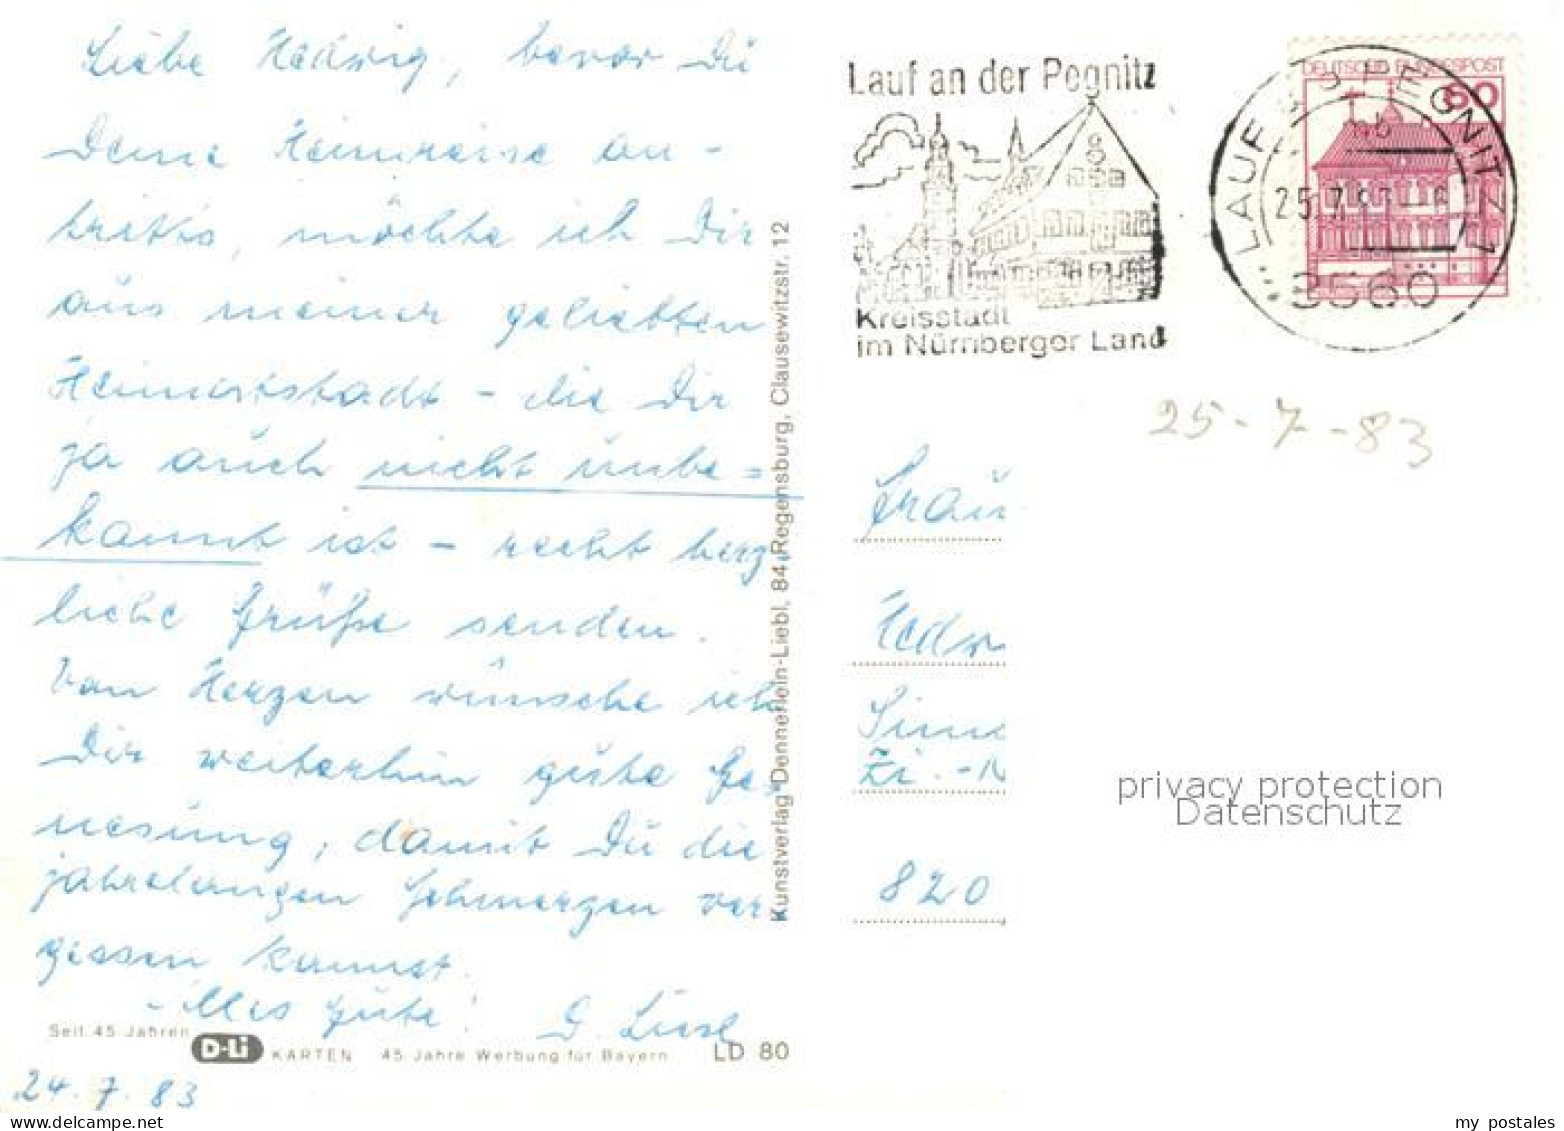 Liebe Hedwig, bevor Du
Deine Heimreise an-
trittst, möchte ich Dir
aus meiner geliebten
Heimatstadt - die Dir
ja auch nicht unbe=
kannt ist - recht herz-
liche Grüße senden.
Von Herzen wünsche ich
Dir weiterhin gute Ge-
nesung, damit Du die
jahrelangen Schmerzen ver
gessen kannst.
Alles Gute!
D. Liesl
Seit 45 Jahren D-Li KARTEN 45 Jahre Werbung für Bayern LD 80
24.7.83
Kunstverlag Dennerlein-Liebl, 84 Regensburg, Clausewitzstr. 12
Lauf an der Pegnitz
Kreisstadt
im Nürnberger Land
DEUTSCHE BUNDESPOST
60
LAUF PEGNITZ 1
25.7.83
8560
25-7-83
Frau
Hedw
Zi.-N
820
privacy protection
Datenschutz
my postales